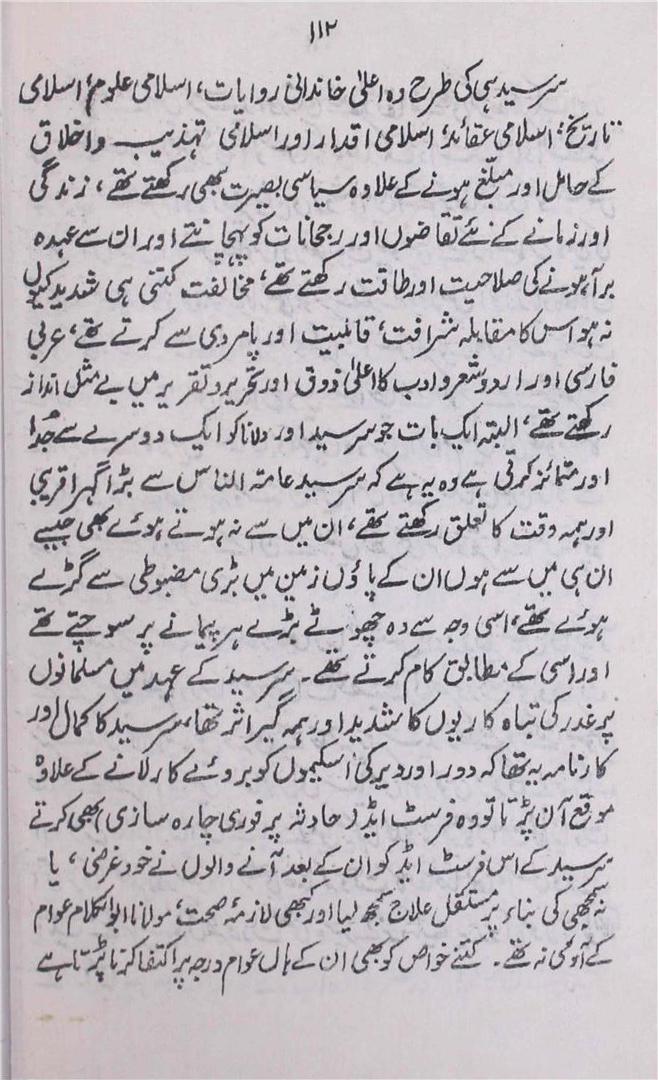 ۱۱۲
سرسید ہی کی طرح وہ اعلیٰ خاندانی روایات، اسلامی علوم، اسلامی
تاریخ، اسلامی عقائد، اسلامی اقدار اور اسلامی تہذیب و اخلاق
کے حامل اور مبلّغ ہونے کے علاوہ سیاسی بصیرت بھی رکھتے تھے، زندگی
اور زمانے کے نئے تقاضوں اور رجحانات کو پہچانتے اور ان سے عہدہ
برآ ہونے کی صلاحیت اور طاقت رکھتے تھے، مخالفت کتنی ہی شدید کیوں
نہ ہو اس کا مقابلہ شرافت، قابلیت اور پامردی سے کرتے تھے، عربی
فارسی اور اردو شعر و ادب کا اعلیٰ ذوق اور تحریر و تقریر میں بے مثل انداز
رکھتے تھے، البتہ ایک بات جو سرسید اور مولانا کو ایک دوسرے سے جُدا
اور متمائز کرتی ہے وہ یہ ہے کہ سرسید عامۃ الناس سے بڑا گہرا قریبی
اور ہمہ وقت کا تعلق رکھتے تھے، ان میں سے نہ ہوتے ہوئے بھی جیسے
ان ہی میں سے ہوں ان کے پاؤں زمین میں بڑی مضبوطی سے گڑے
ہوئے تھے، اسی وجہ سے وہ چھوٹے بڑے ہر پیمانے پر سوچتے تھے
اور اسی کے مطابق کام کرتے تھے۔ سرسید کے عہد میں مسلمانوں
پر غدر کی تباہ کاریوں کا شدید اور ہمہ گیر اثر تھا، سرسید کا کمال اور
کارنامہ یہ تھا کہ دور اور دیر کی اسکیموں کو بروئے کار لانے کے علاوہ
موقع آن پڑتا تو وہ فرسٹ ایڈ (حادثہ پر فوری چارہ سازی) بھی کرتے
سرسید کے اس فرسٹ ایڈ کو ان کے بعد آنے والوں نے خود غرضی، یا
نہ سمجھی کی بناء پر مستقل علاج سمجھ لیا اور کبھی لازمۂ صحت، مولانا ابوالکلام عوام
کے آدمی نہ تھے۔ کتنے خواص کو بھی ان کے ہاں عوام درجہ پر اکتفا کرنا پڑتا ہے